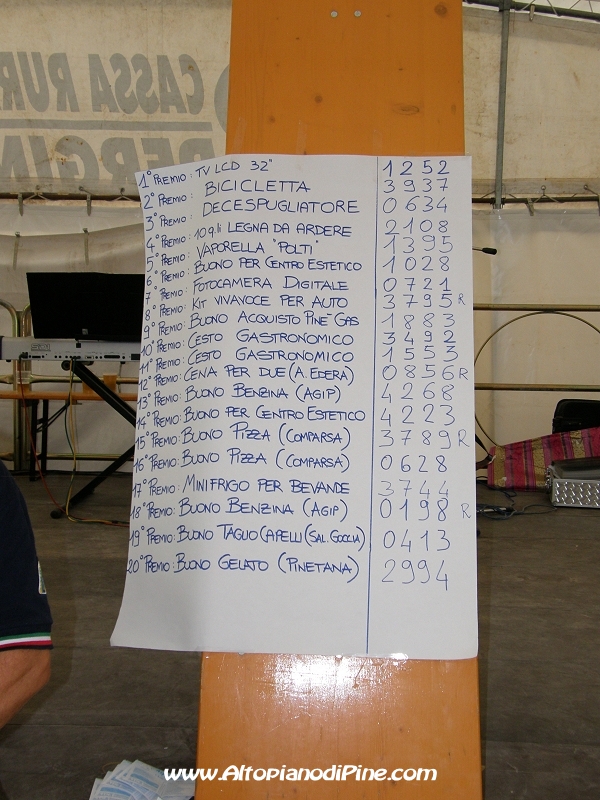 CASSA RUR
PERGIN
1° PREMIO: TV LCD 32" 1252
2° PREMIO: BICICLETTA 3937
3° PREMIO: DECESPUGLIATORE 0634
4° PREMIO: 10 q.li LEGNA DA ARDERE 2108
5° PREMIO: VAPORELLA "POLTI" 1395
6° PREMIO: BUONO PER CENTRO ESTETICO 1028
7° PREMIO: FOTOCAMERA DIGITALE 0721
8° PREMIO: KIT VIVAVOCE PER AUTO 3795 R
9° PREMIO: BUONO ACQUISTO PINÈ GAS 1883
10° PREMIO: CESTO GASTRONOMICO 3492
11° PREMIO: CESTO GASTRONOMICO 1553
12° PREMIO: CENA PER DUE (A. EDERA) 0856 R
13° PREMIO: BUONO BENZINA (AGIP) 4268
14° PREMIO: BUONO PER CENTRO ESTETICO 4223
15° PREMIO: BUONO PIZZA (COMPARSA) 3789 R
16° PREMIO: BUONO PIZZA (COMPARSA) 0628
17° PREMIO: MINIFRIGO PER BEVANDE 3744
18° PREMIO: BUONO BENZINA (AGIP) 0198 R
19° PREMIO: BUONO TAGLIO CAPELLI (SAL. GOCCIA) 0413
20° PREMIO: BUONO GELATO (PINETANA) 2994
www.AltopianodiPine.com